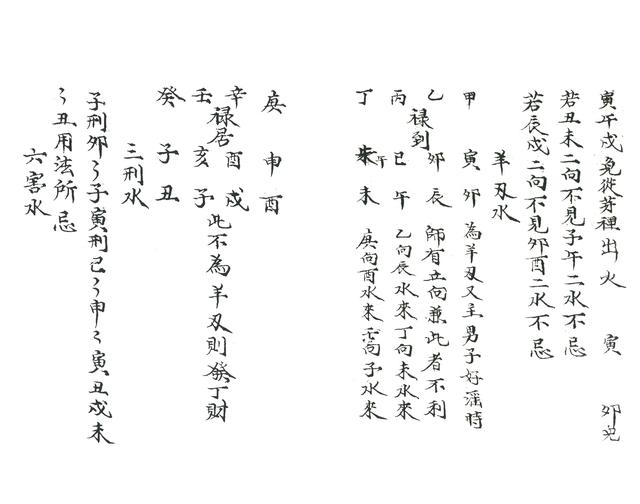 寅午戌兔從茅裡出火 寅 卯兔
若丑未二向不見子午二水不忌
若辰戌二向不見卯酉二水不忌
羊刃水
甲 寅卯 為羊刃又主男子好淫時
乙祿到卯辰 師有立向兼此者不利
丙 巳午 乙向辰水來丁向未水來
丁 午未 庚向酉水來壬向子水來
庚 申酉
辛祿居酉戌此不為羊刃則發丁財
壬 亥子
癸 子丑
三刑水
子刑卯〻子寅刑巳〻申〻寅丑戌未
〻丑用法所忌
六害水